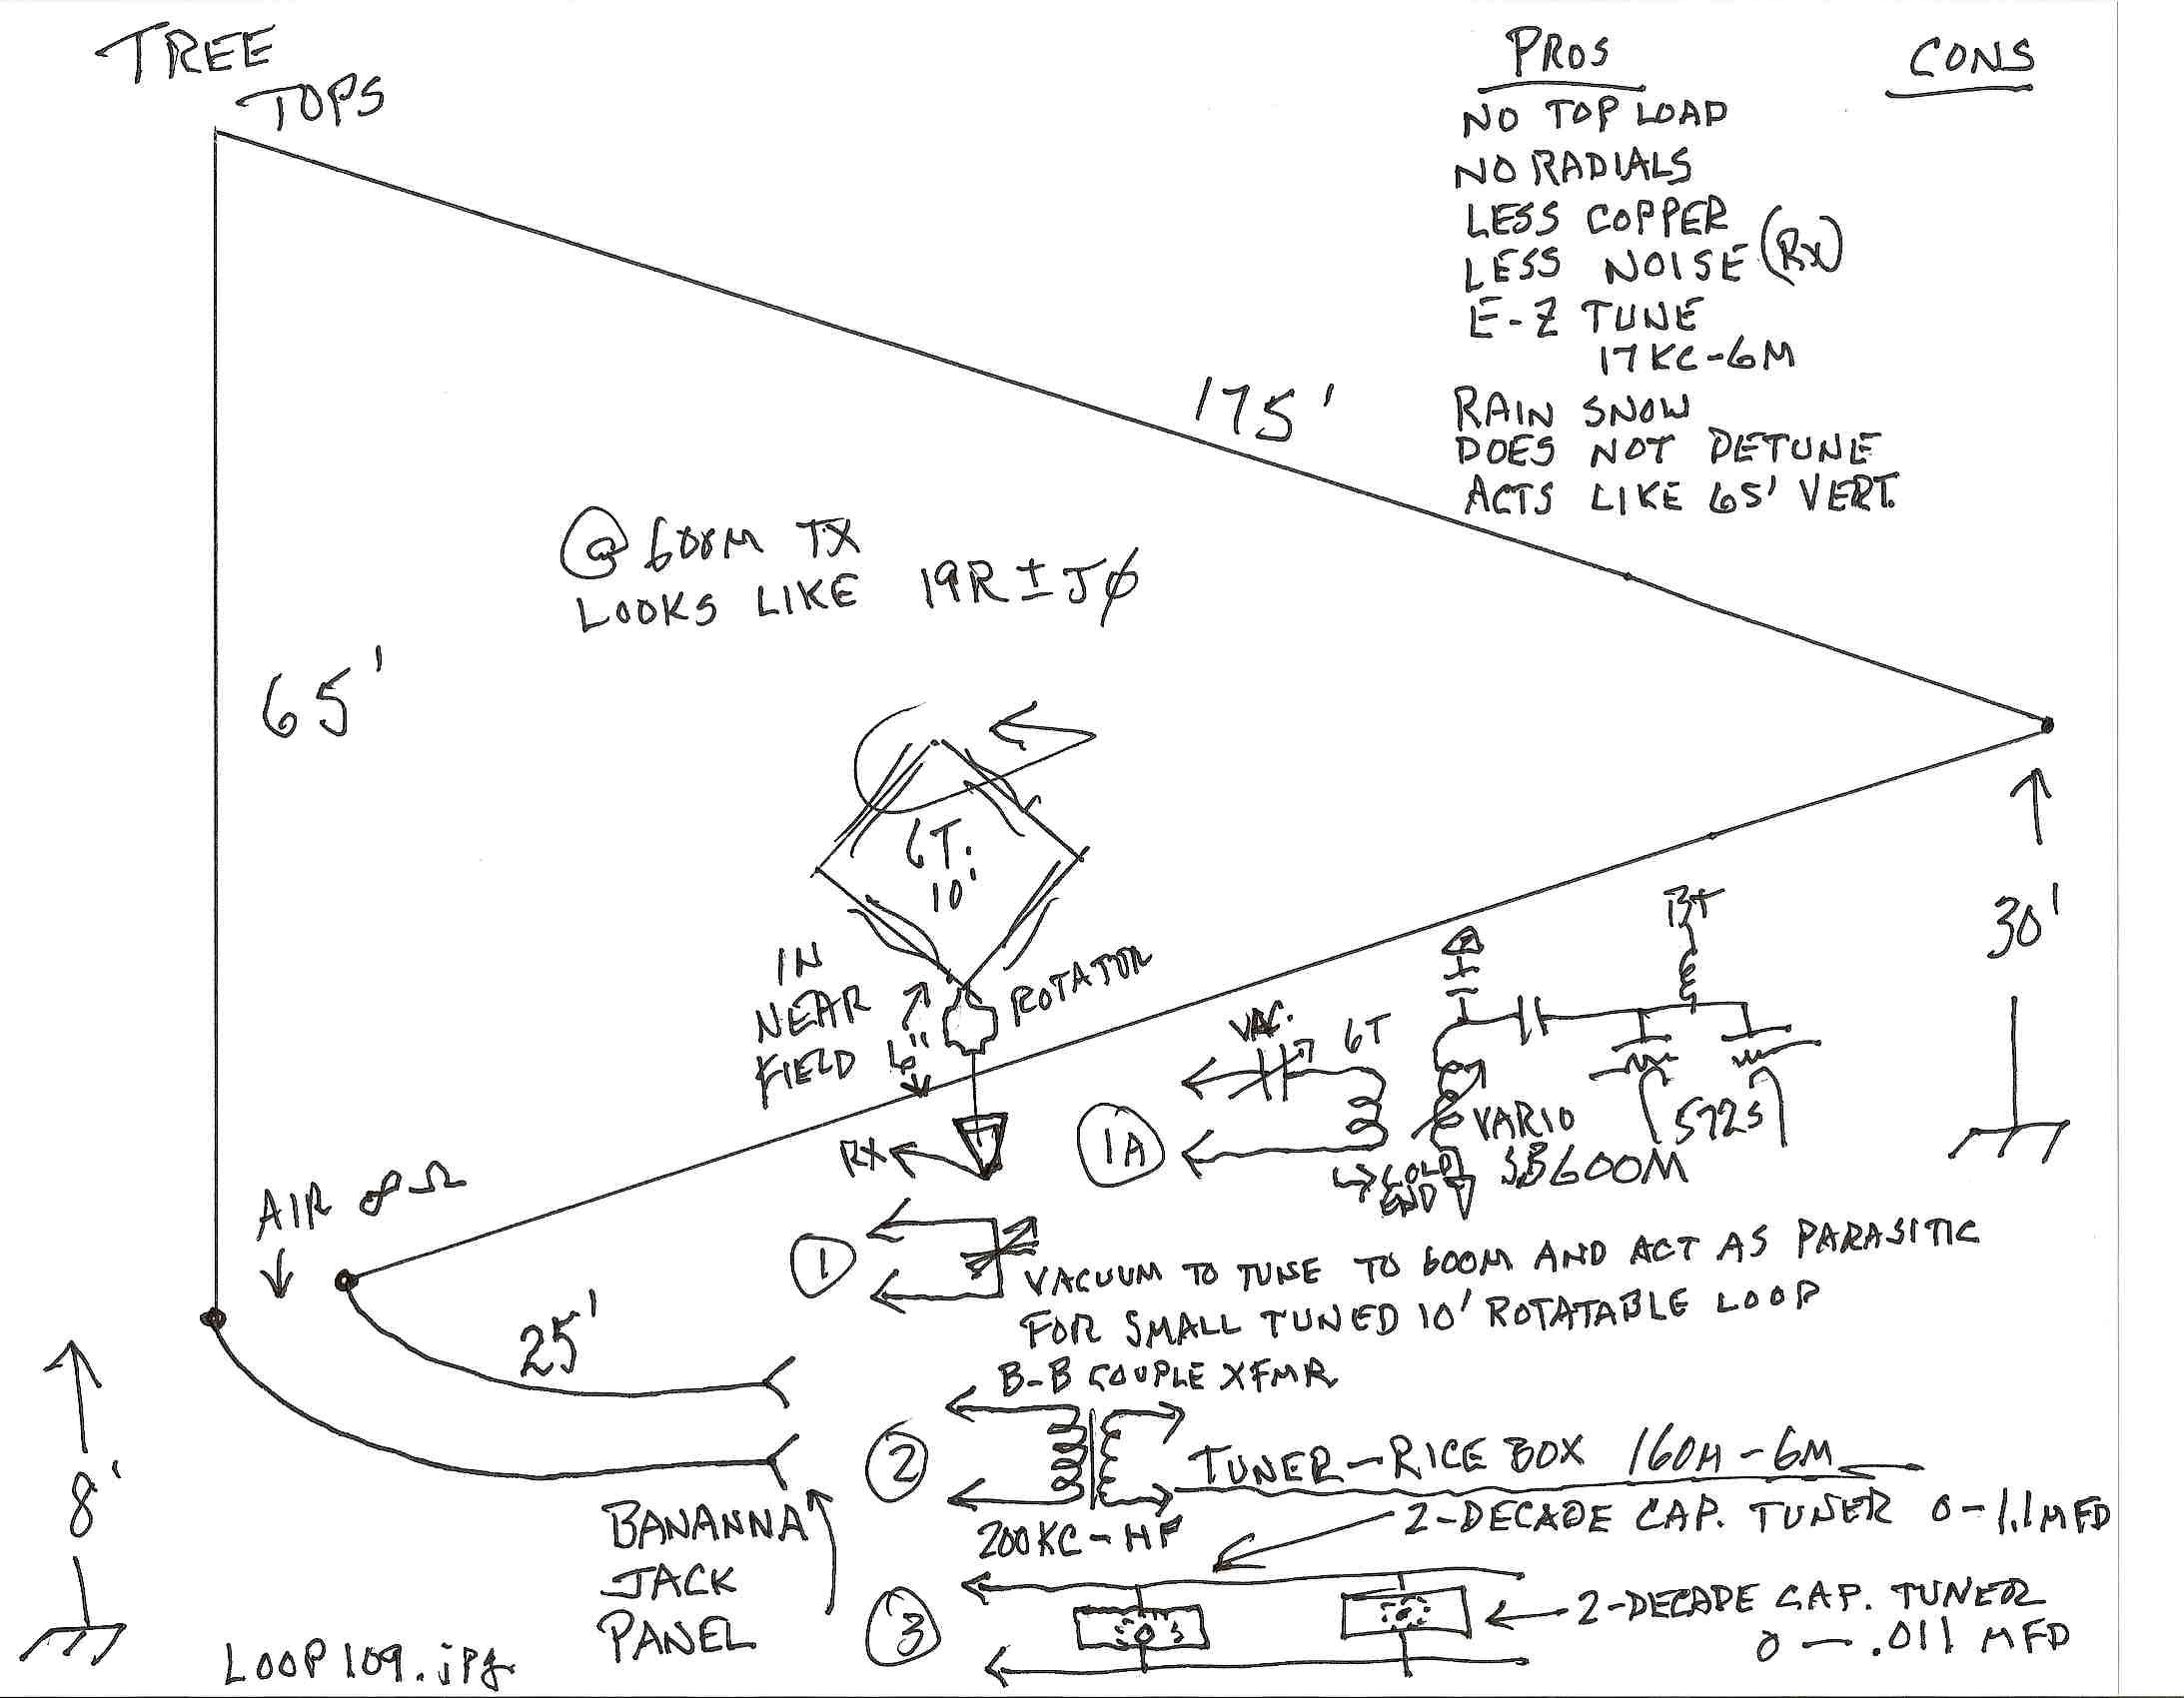 TREE
TOPS
PROS
CONS
NO TOP LOAD
NO RADIALS
LESS COPPER
LESS NOISE (RX)
E-Z TUNE
17KC-6M
RAIN SNOW
DOES NOT DETUNE
ACTS LIKE 65' VERT.
175'
@ 600M TX
LOOKS LIKE 19R ± JØ
65'
6T.
10'
IN
NEAR
FIELD
6"
ROTATOR
RX
B+
30'
VAC.
6T
1A
VARIO
572S
COLD
END
SB600M
AIR ∞ Ω
1
VACUUM TO TUNE TO 600M AND ACT AS PARASITIC
FOR SMALL TUNED 10' ROTATABLE LOOP
25'
B-B COUPLE XFMR
2
TUNER-RICE BOX 160M-6M
200KC-HF
2-DECADE CAP. TUNER 0-1.1MFD
8'
BANANNA
JACK
PANEL
3
2-DECADE CAP. TUNER
0-.011 MFD
LOOP109.jpg